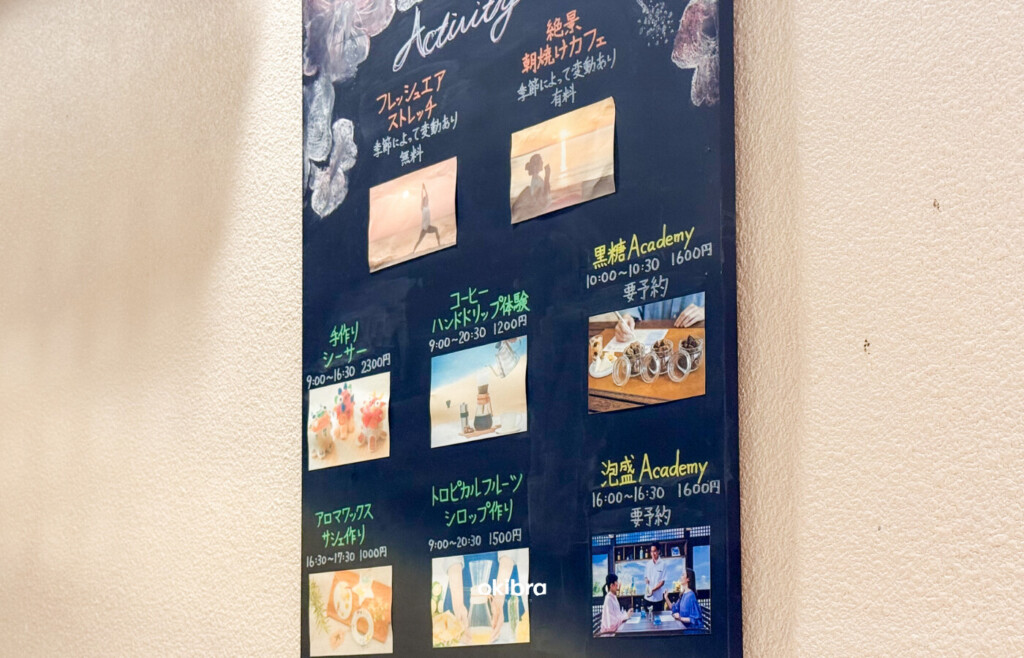 Activity
フレッシュエア
ストレッチ
季節によって変動あり
無料
絶景
朝焼けカフェ
季節によって変動あり
有料
黒糖Academy
10:00~10:30 1600円
要予約
手作り
シーサー
9:00~16:30 2300円
コーヒー
ハンドドリップ体験
9:00~20:30 1200円
アロマワックス
サシェ作り
16:30~17:30 1000円
トロピカルフルーツ
シロップ作り
9:00~20:30 1500円
泡盛Academy
16:00~16:30 1600円
要予約
okibra